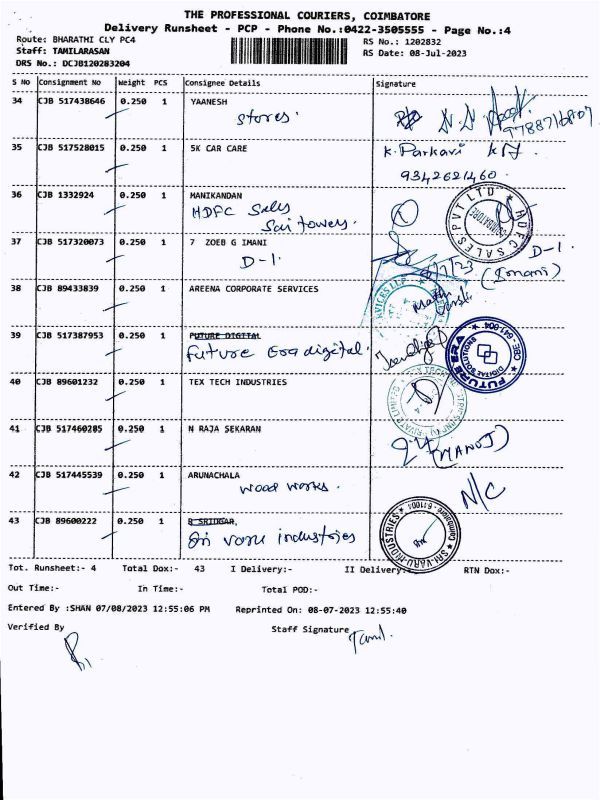 THE PROFESSIONAL COURIERS, COIMBATORE
Delivery Runsheet - PCP - Phone No.:0422-3505555 - Page No.:4
Route: BHARATHI CLY PC4
RS No.: 1202832
Staff: TAMILARASAN
RS Date: 08-Jul-2023
DRS No.: DCJB120283204
S No Consignment No Weight PCS Consignee Details Signature
34 CJB 517438646 0.250 1 YAANESH
stores.
9788716807
35 CJB 517528015 0.250 1 SK CAR CARE
K. Parkavi
9342621460.
36 CJB 1332924 0.250 1 MANIKANDAN
HDFC Sales
Sai towers.
HDFC SALES PVT LTD
37 CJB 517320073 0.250 1 7 ZOEB G IMANI
D-1
D-1.
(Imani)
38 CJB 89433839 0.250 1 AREENA CORPORATE SERVICES
SERVICES LLP
39 CJB 517387953 0.250 1 FUTURE DIGITAL
Future Era digital.
FUTURE ERA DIGITAL SOLUTIONS CBE-641 004.
40 CJB 89601232 0.250 1 TEX TECH INDUSTRIES
41 CJB 517460285 0.250 1 N RAJA SEKARAN
(MANOJ)
42 CJB 517445539 0.250 1 ARUNACHALA
wood works.
N/C
43 CJB 89600222 0.250 1 B SRIDGAR,
Sri varu industries
SRI VARU INDUSTRIES
Tot. Runsheet:- 4 Total Dox:- 43 I Delivery:- II Delivery:- RTN Dox:-
Out Time:- In Time:- Total POD:-
Entered By :SHAN 07/08/2023 12:55:06 PM Reprinted On: 08-07-2023 12:55:40
Verified By Staff Signature
Tamil.